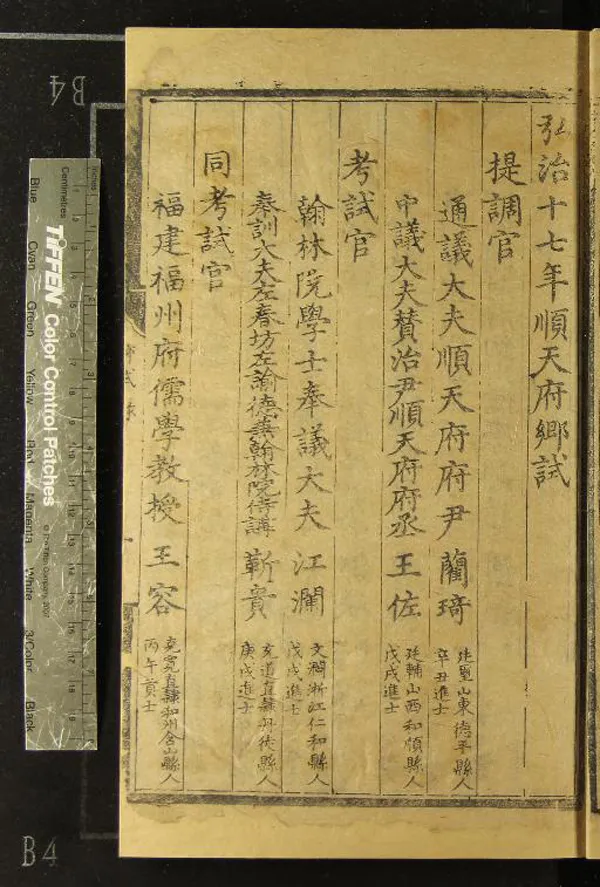 弘治十七年順天府鄉試
提調官
通議大夫順天府府尹藺琦
廷璽山東德平縣人
辛丑進士
中議大夫贊治尹順天府府丞王佐
廷輔山西和順縣人
戊戌進士
考試官
翰林院學士奉議大夫江瀾
文瀾浙江仁和縣人
戊戌進士
奉訓大夫左春坊左諭德兼翰林院侍講靳貴
充道直隸丹徒縣人
庚戌進士
同考試官
福建福州府儒學教授王容
克寬直隸和州含山縣人
丙午貢士
B4
B4
Inches
Centimetres
TIFFEN Color Control Patches
© The Tiffen Company, 2007
Blue
Cyan
Green
Yellow
Red
Magenta
White
3/Color
Black